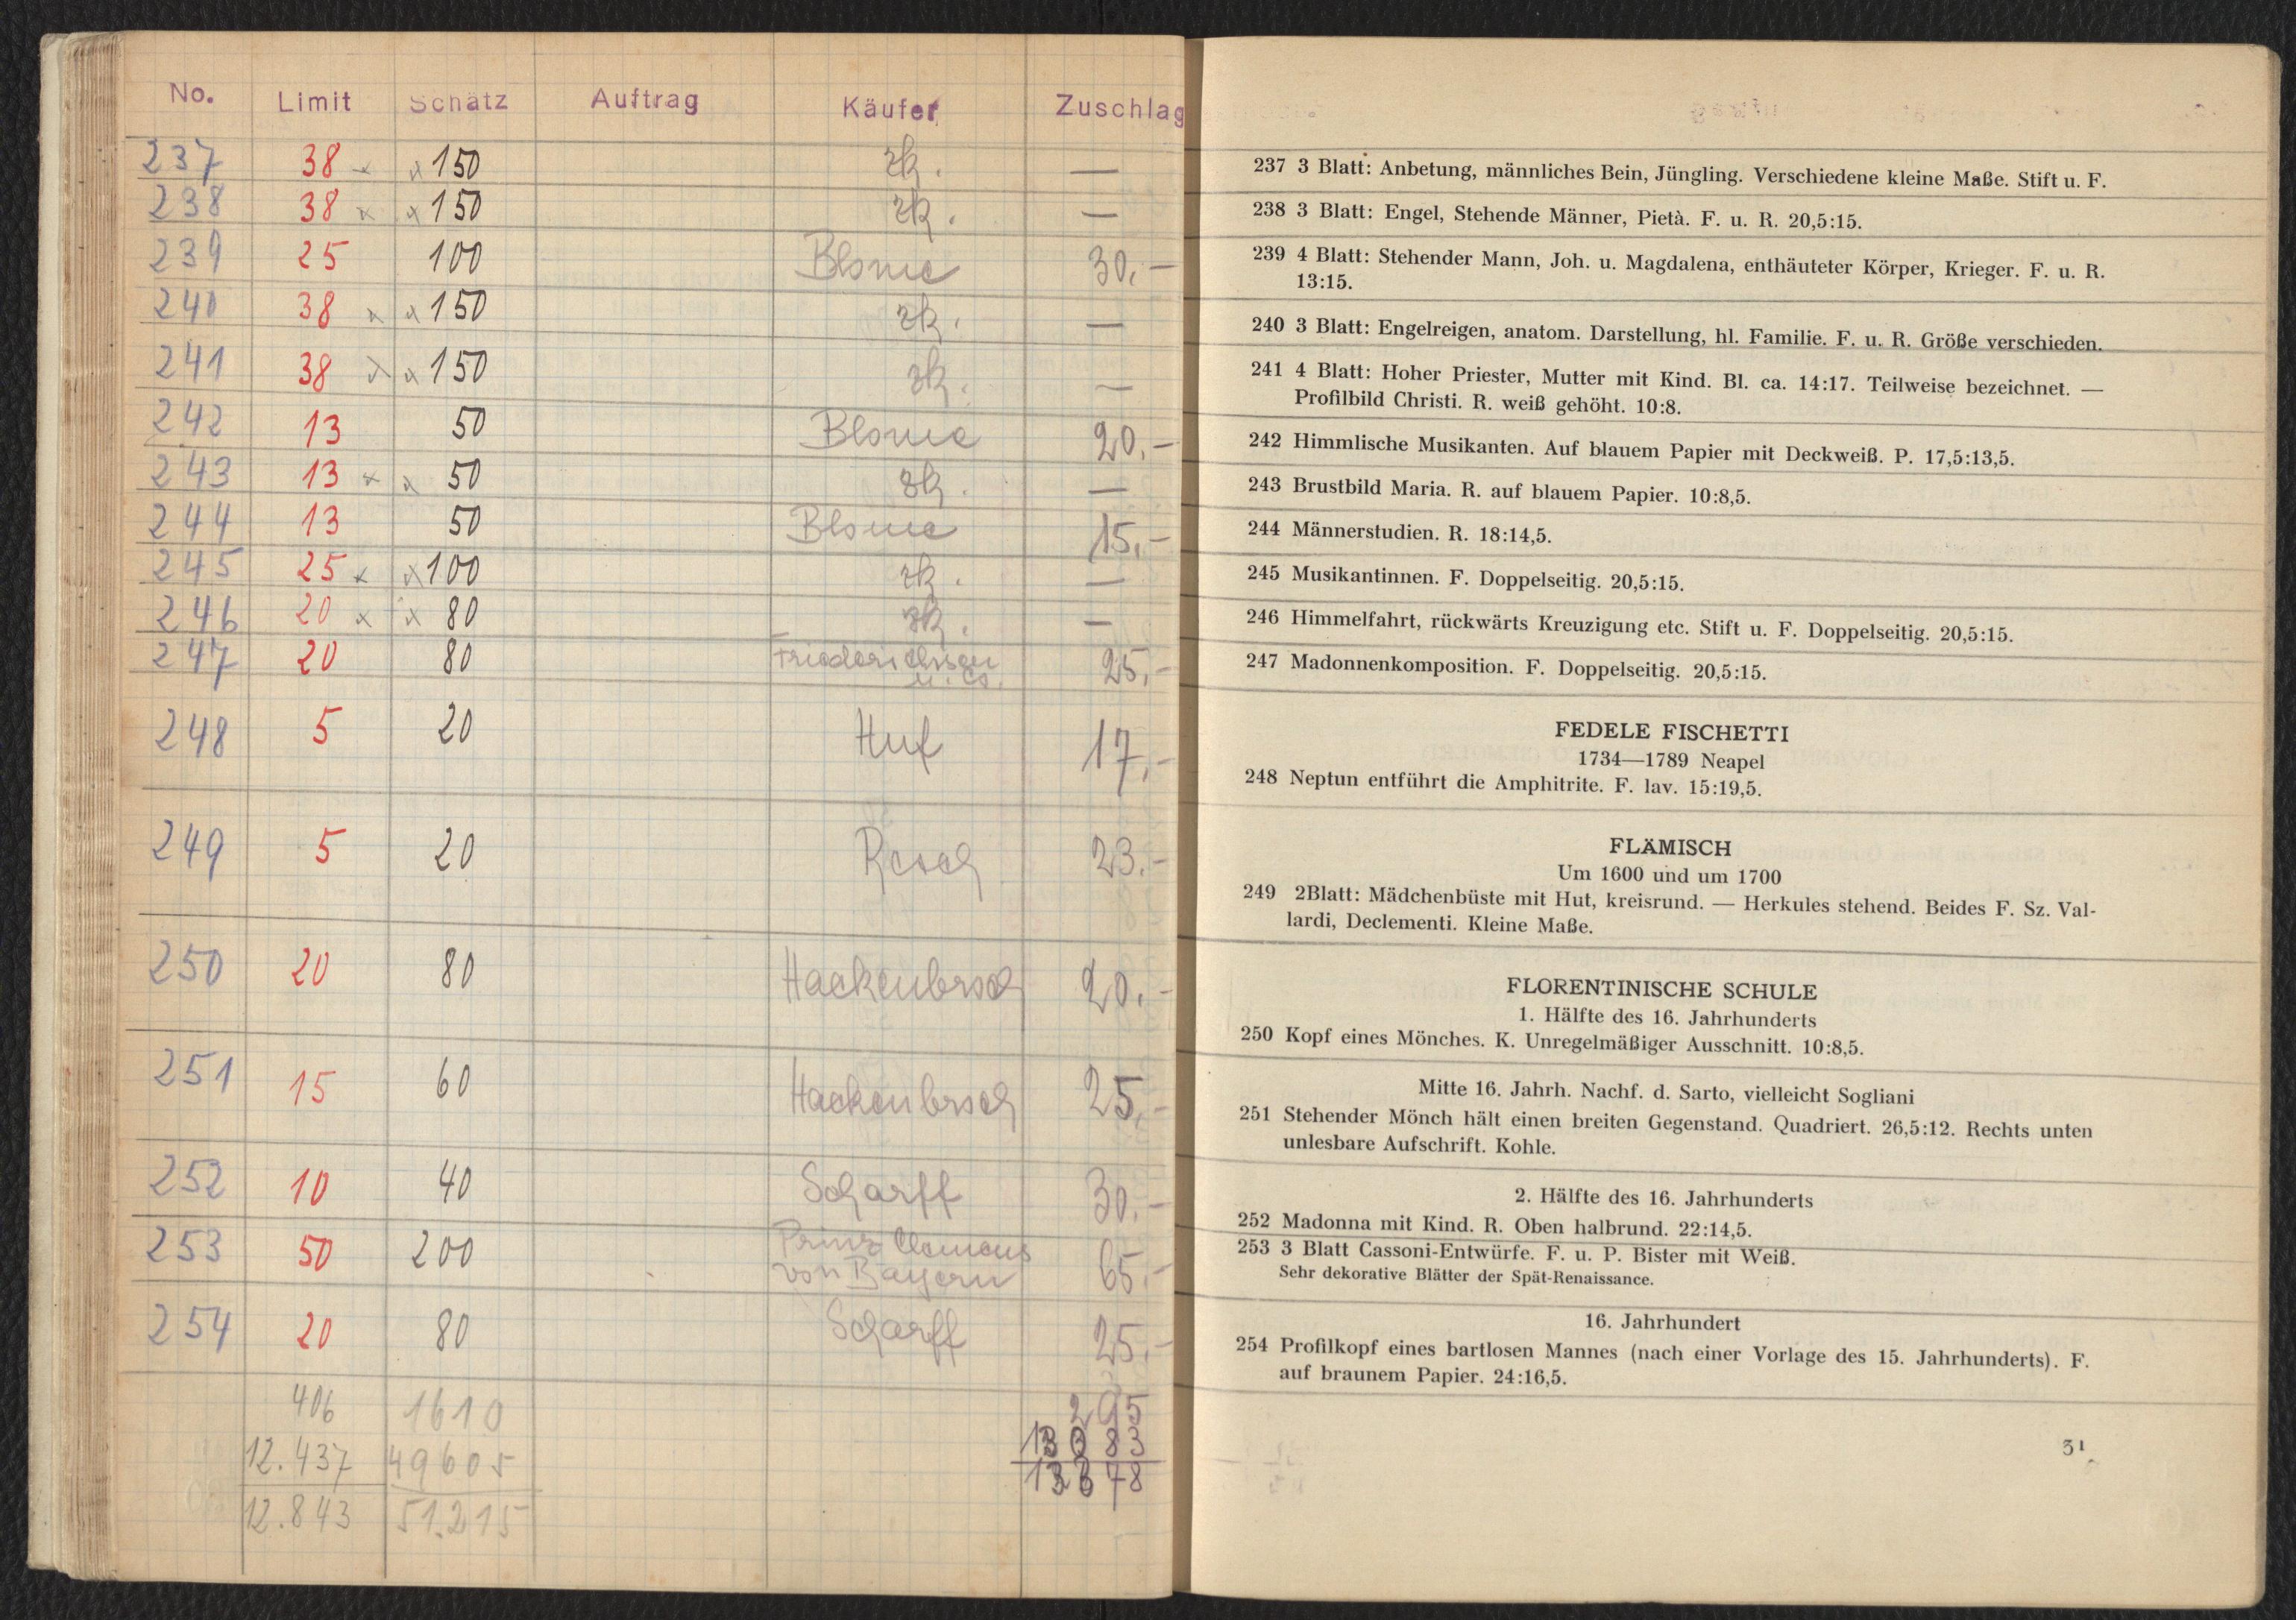 No. Limit Schätz Auftrag Käufer Zuschlag
237 38 x x 150 zk. —
238 38 x x 150 zk. —
239 25 100 Blome 30.–
240 38 x x 150 zk. —
241 38 x x 150 zk. —
242 13 50 Blome 20.–
243 13 x x 50 zk. —
244 13 50 Blome 15.–
245 25 x x 100 zk. —
246 20 x x 80 zk. —
247 20 80 Friederichsen 25.–
u. Co.
248 5 20 Huf 17.–
249 5 20 23.–
250 20 80 Hackenbroch 20.–
251 15 60 Hackenbroch 25.–
252 10 40 Scharff 30.–
253 50 200 Prinz Clemens
von Bayern 65.–
254 20 80 Scharff 25.–
406 1610 295
12.437 49605 13083
12.843 51.215 13378
237 3 Blatt: Anbetung, männliches Bein, Jüngling. Verschiedene kleine Maße. Stift u. F.
238 3 Blatt: Engel, Stehende Männer, Pietà. F. u. R. 20,5:15.
239 4 Blatt: Stehender Mann, Joh. u. Magdalena, enthäuteter Körper, Krieger. F. u. R.
13:15.
240 3 Blatt: Engelreigen, anatom. Darstellung, hl. Familie. F. u. R. Größe verschieden.
241 4 Blatt: Hoher Priester, Mutter mit Kind. Bl. ca. 14:17. Teilweise bezeichnet. —
Profilbild Christi. R. weiß gehöht. 10:8.
242 Himmlische Musikanten. Auf blauem Papier mit Deckweiß. P. 17,5:13,5.
243 Brustbild Maria. R. auf blauem Papier. 10:8,5.
244 Männerstudien. R. 18:14,5.
245 Musikantinnen. F. Doppelseitig. 20,5:15.
246 Himmelfahrt, rückwärts Kreuzigung etc. Stift u. F. Doppelseitig. 20,5:15.
247 Madonnenkomposition. F. Doppelseitig. 20,5:15.
FEDELE FISCHETTI
1734—1789 Neapel
248 Neptun entführt die Amphitrite. F. lav. 15:19,5.
FLÄMISCH
Um 1600 und um 1700
249 2Blatt: Mädchenbüste mit Hut, kreisrund. — Herkules stehend. Beides F. Sz. Val-
lardi, Declementi. Kleine Maße.
FLORENTINISCHE SCHULE
1. Hälfte des 16. Jahrhunderts
250 Kopf eines Mönches. K. Unregelmäßiger Ausschnitt. 10:8,5.
Mitte 16. Jahrh. Nachf. d. Sarto, vielleicht Sogliani
251 Stehender Mönch hält einen breiten Gegenstand. Quadriert. 26,5:12. Rechts unten
unlesbare Aufschrift. Kohle.
2. Hälfte des 16. Jahrhunderts
252 Madonna mit Kind. R. Oben halbrund. 22:14,5.
253 3 Blatt Cassoni-Entwürfe. F. u. P. Bister mit Weiß.
Sehr dekorative Blätter der Spät-Renaissance.
16. Jahrhundert
254 Profilkopf eines bartlosen Mannes (nach einer Vorlage des 15. Jahrhunderts). F.
auf braunem Papier. 24:16,5.
31